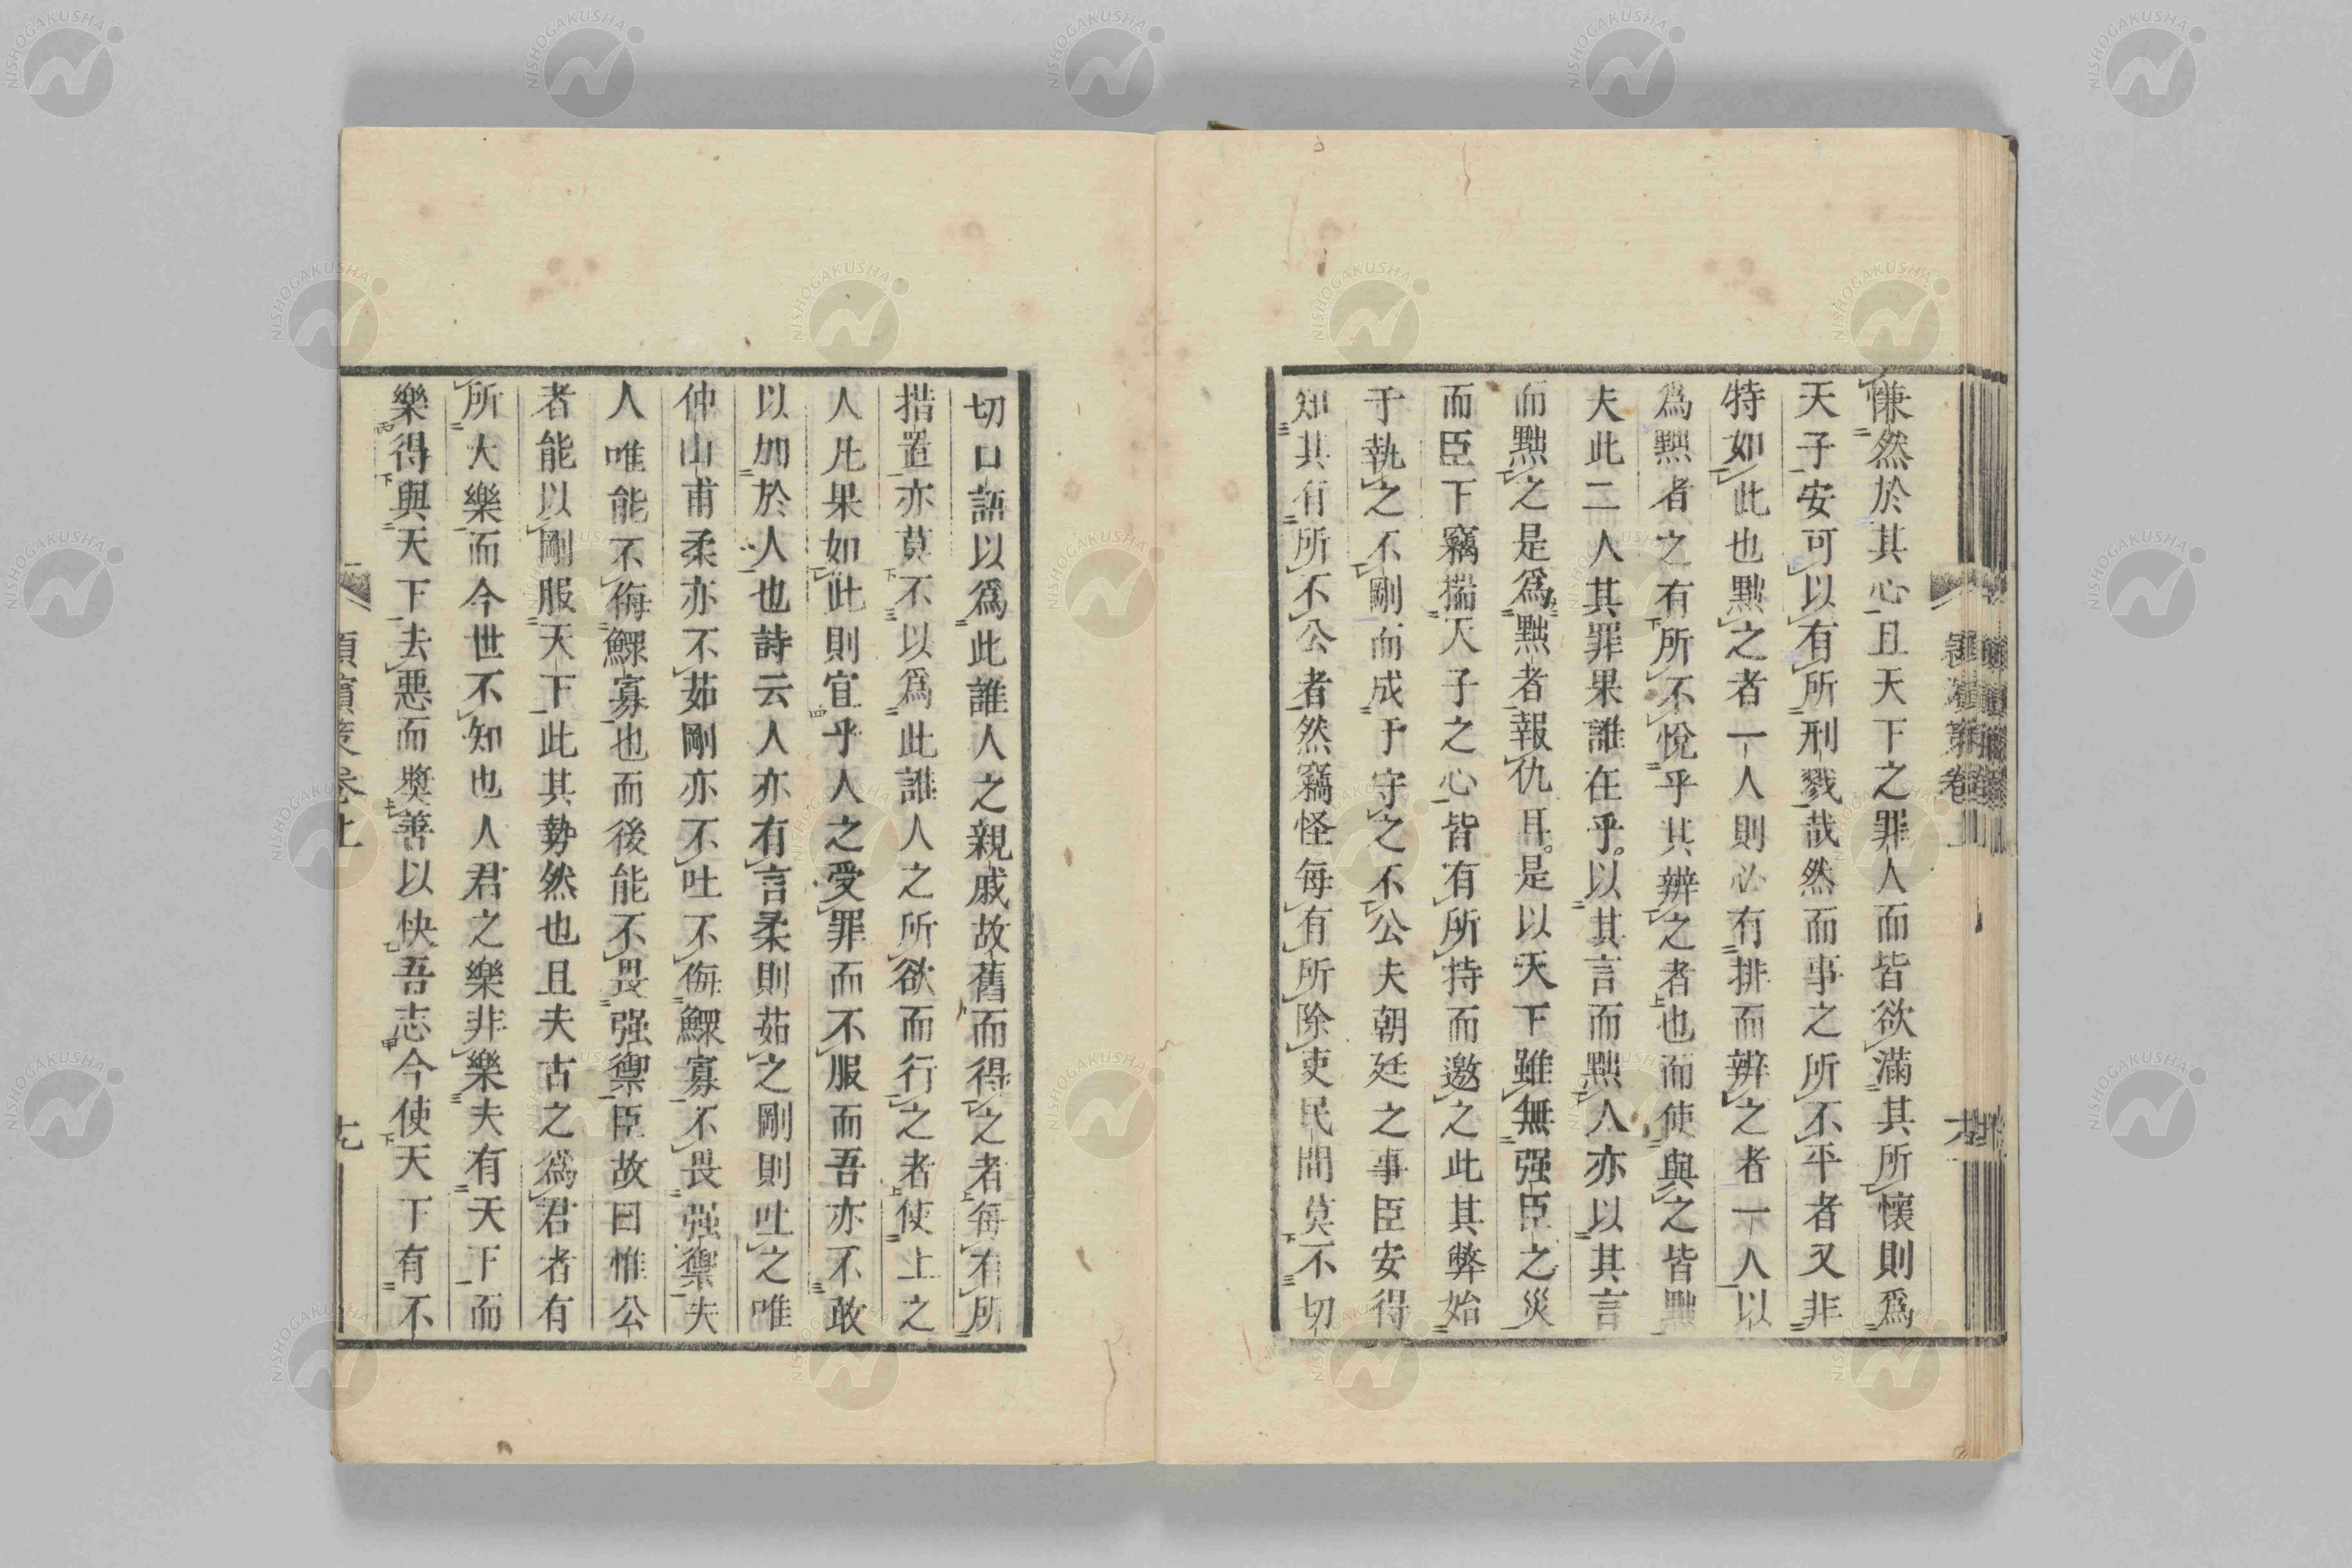 慊然於其心且天下之罪人而皆欲滿其所懷則爲
天子安可以有所刑戮哉然而事之所不平者又非
特如此也黜之者一人則必有排而辨之者一人以
爲黜者之有所不悅乎其辨之者也而使與之皆黜
夫此二人其罪果誰在乎。以其言而黜人亦以其言
而黜之是爲黜者報仇耳。是以天下雖無强臣之災
而臣下竊揣天子之心皆有所持而邀之此其弊始
于執之不剛而成于守之不公夫朝廷之事臣安得
知其有所不公者然竊怪每有所除吏民間莫不切
切口語以爲此誰人之親戚故舊而得之者每有所
措置亦莫不以爲此誰人之所欲而行之者使上之
人凡果如此則宜乎人之受罪而不服而吾亦不敢
以加於人也詩云人亦有言柔則茹之剛則吐之唯
仲山甫柔亦不茹剛亦不吐不侮鰥寡不畏强禦夫
人唯能不侮鰥寡也而後能不畏强禦臣故曰惟公
者能以剛服天下此其勢然也且夫古之爲君者有
所大樂而今世不知也人君之樂非樂夫有天下而
樂得與天下去惡而奬善以快吾志今使天下有不
潁濱策卷上
十九
NISHOGAKUSHA